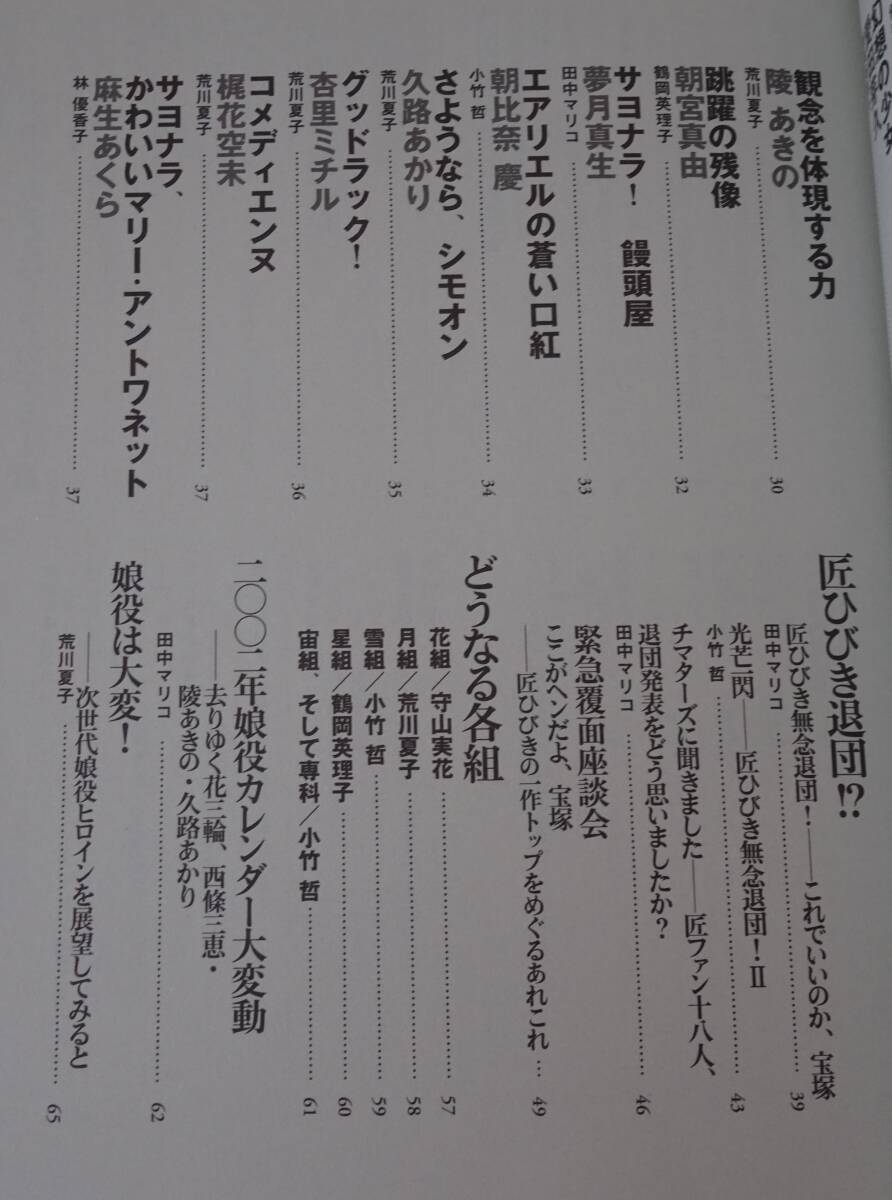 観念を体現する力
陵 あきの
荒川夏子……30
跳躍の残像
朝宮真由
鶴岡英理子……32
サヨナラ！ 饅頭屋
夢月真生
田中マリコ……33
エアリエルの蒼い口紅
朝比奈 慶
小竹 哲……34
さようなら、シモオン
久路あかり
荒川夏子……35
グッドラック！
杏里ミチル
荒川夏子……36
コメディエンヌ
梶花空未
荒川夏子……37
サヨナラ、
かわいいマリー・アントワネット
麻生あくら
林 優香子……37
匠ひびき退団!?
匠ひびき無念退団！——これでいいのか、宝塚
田中マリコ……39
光芒一閃——匠ひびき無念退団！Ⅱ
小竹 哲……43
チマターズに聞きました——匠ファン十八人、
退団発表をどう思いましたか？
田中マリコ……46
緊急覆面座談会
ここがヘンだよ、宝塚
——匠ひびきの一作トップをめぐるあれこれ…49
どうなる各組
花組／守山実花……57
月組／荒川夏子……58
雪組／小竹 哲……59
星組／鶴岡英理子……60
宙組、そして専科／小竹 哲……61
二〇〇二年娘役カレンダー大変動
——去りゆく花三輪、西條三恵・
陵あきの・久路あかり
田中マリコ……62
娘役は大変！
——次世代娘役ヒロインを展望してみると
荒川夏子……65